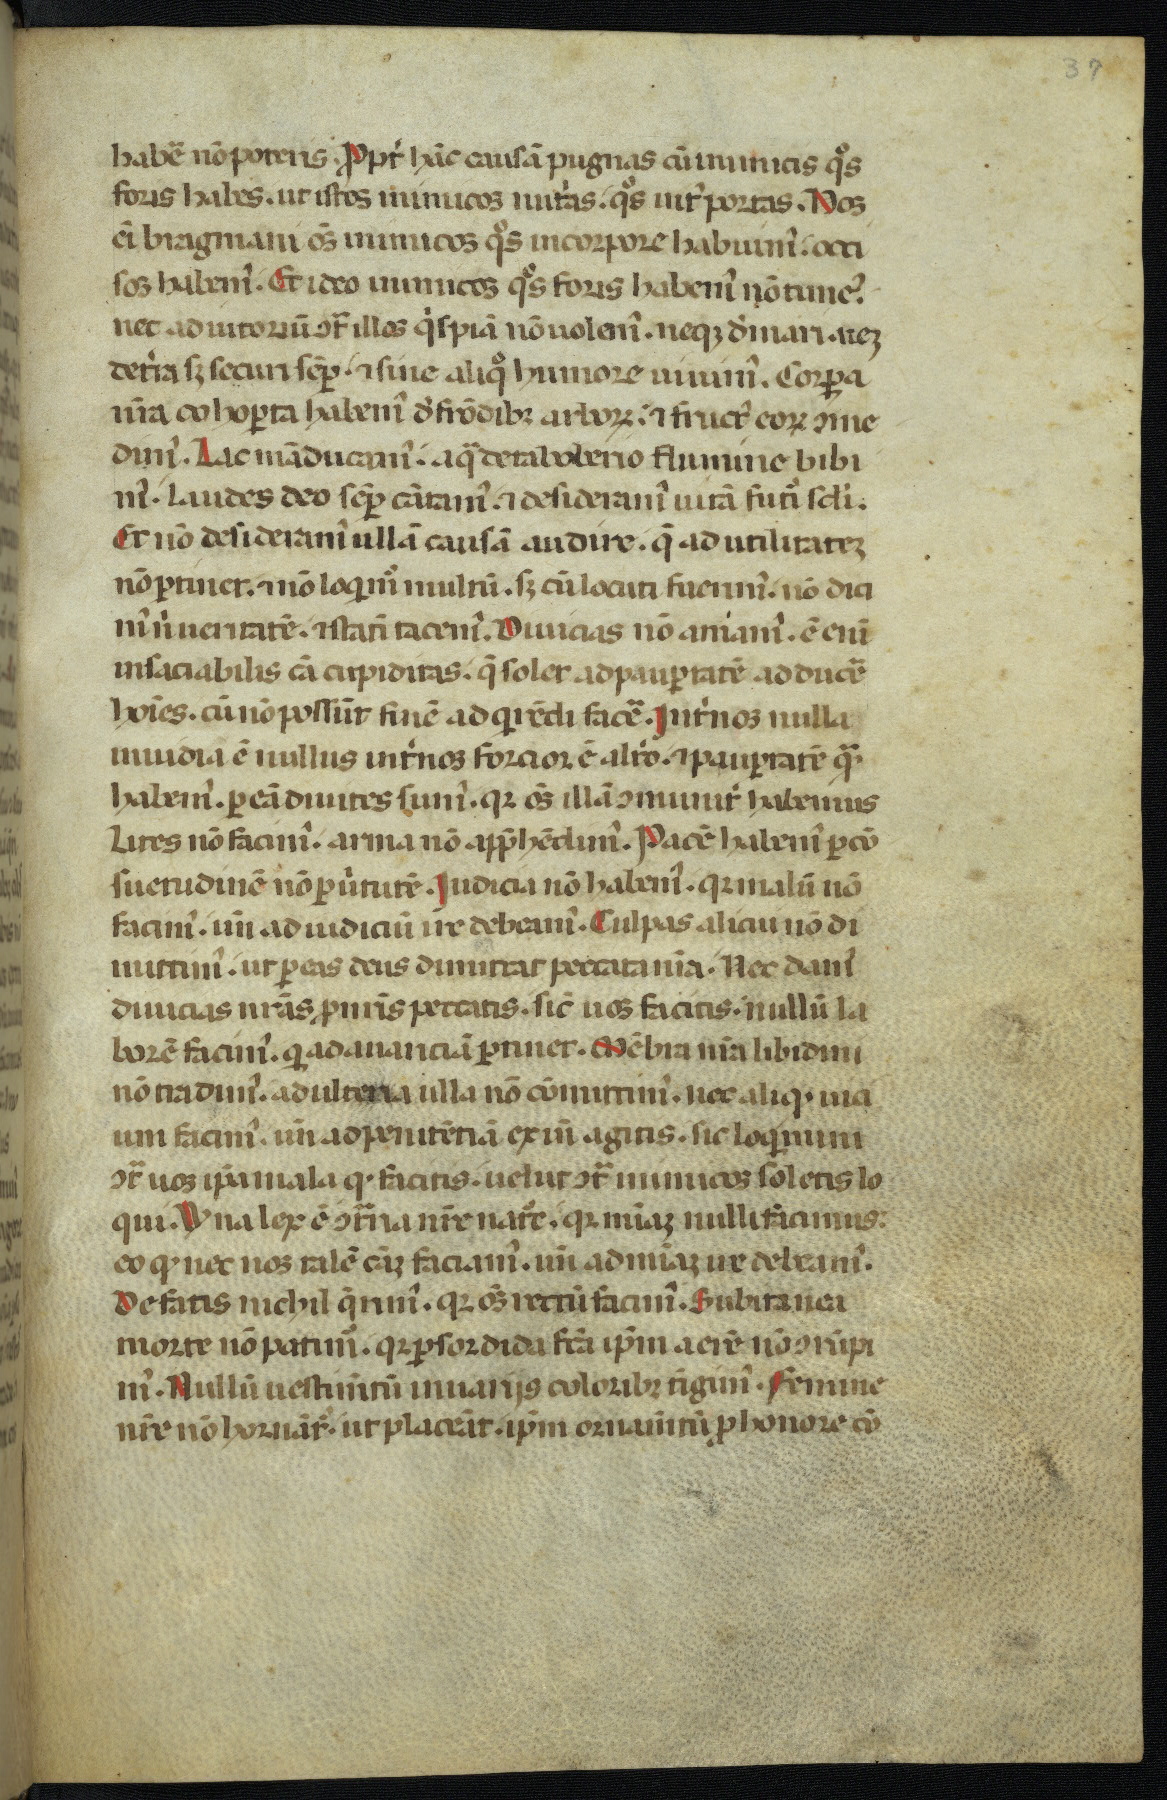 37
habē nō poteris. Ppt̄ hāc causā pugnas cū inimicis qͦs
foris habes. ut istos inimicos nut̄as. qͦs int̄ portas. Nos
ēi bragmani oēs inimicos qͦs in corpore habuim᷒. occi
sos habem᷒. Et ideo inimicos qͦs foris habem᷒ nō timem᷒.
nec adiutoriū ↄt̄ illos q̇spiā nō uolem᷒. neqꝫ d̄ mari. neqꝫ
de t̄ra sꝫ securi sēꝑ. ⁊ sine aliqͦ humore uiuim᷒. Corꝑa
nr̄a cohoꝑta habem᷒ d̄ frōdibꝫ arboꝝ. ⁊ fructꝰ eoꝝ ↄme
dim᷒. Lac māducam᷒. aq̄ de taboberio flumine bibi
m᷒. Laudes deo sēꝑ cātam᷒. ⁊ desideram᷒ uitā futi̇ scl̄i.
Et nō desideram᷒ ullā causā audire. q̄ ad utilitateꝫ
nō ꝑtinet. ⁊ nō loq̇m᷒ multū. sꝫ cū locuti fuerim᷒. nō dici
m᷒ n̄ ueritatē. ⁊ stati̅ tacem᷒. Diuicias nō amam᷒. ē eni̅
insaciabilis cā cupiditas. q̄ solet ad pauꝑtatē adducē
hoīes. cū nō possūt finē adq̇rēdi facē. Int̄ nos nulla
inuidia ē nullus int̄ nos forcior ē alt̄o. ⁊ pauꝑtatē q̄
habem᷒. ꝑ eā diuites sum᷒. qꝛ oēs illā ↄmunit̄ habemus
Lites nō facim᷒. arma nō app̄hēdim᷒. Pacē habem᷒ ꝑ cō
suetudinē nō ꝑ ūtutē. Iudicia nō habem᷒. qꝛ malū nō
facim᷒. un̄ ad iudiciū ire debeam᷒. Culpas alicui nō di
mittim᷒. ut ꝑ eas deus dimittat peccata nr̄a. Nec dam᷒
diuicias nr̄as ꝓ nr̄is peccatis. sic̄ uos facitis. nullū la
borē facim᷒. q̇ ad auariciā ꝑtinet. Mēbra nr̄a libidini
nō tradim᷒. adulteria ulla nō cōmittim᷒. nec aliqͩ uici
um facim᷒. un̄ ad penitētiā exin̄ agitis. sic loq̇mini
ↄt̄ uos ip̄a mala qͩ facitis. uelut ↄt̄ inimicos soletis lo
qui. Vna lex ē ↄt̄ria nr̄e nat̄e. qꝛ mīaꝫ nulli facimus:
eo qͩ nec nos talē cāꝫ faciam᷒. un̄ ad mīaꝫ ire debeam᷒.
De fatis nichil q̄rim᷒. qꝛ oēs rectū facim᷒. Subitanea
morte nō patim᷒. qꝛ ꝑ sordida fc̄a ip̄m aerē nō ↄrūpi
m᷒. Nullū uestim̄tū in uarijs coloribꝫ tīgim᷒. Femine
nr̄e nō hornāt̄. ut placeāt. ip̄m ornam̄tū ꝓ honore cō